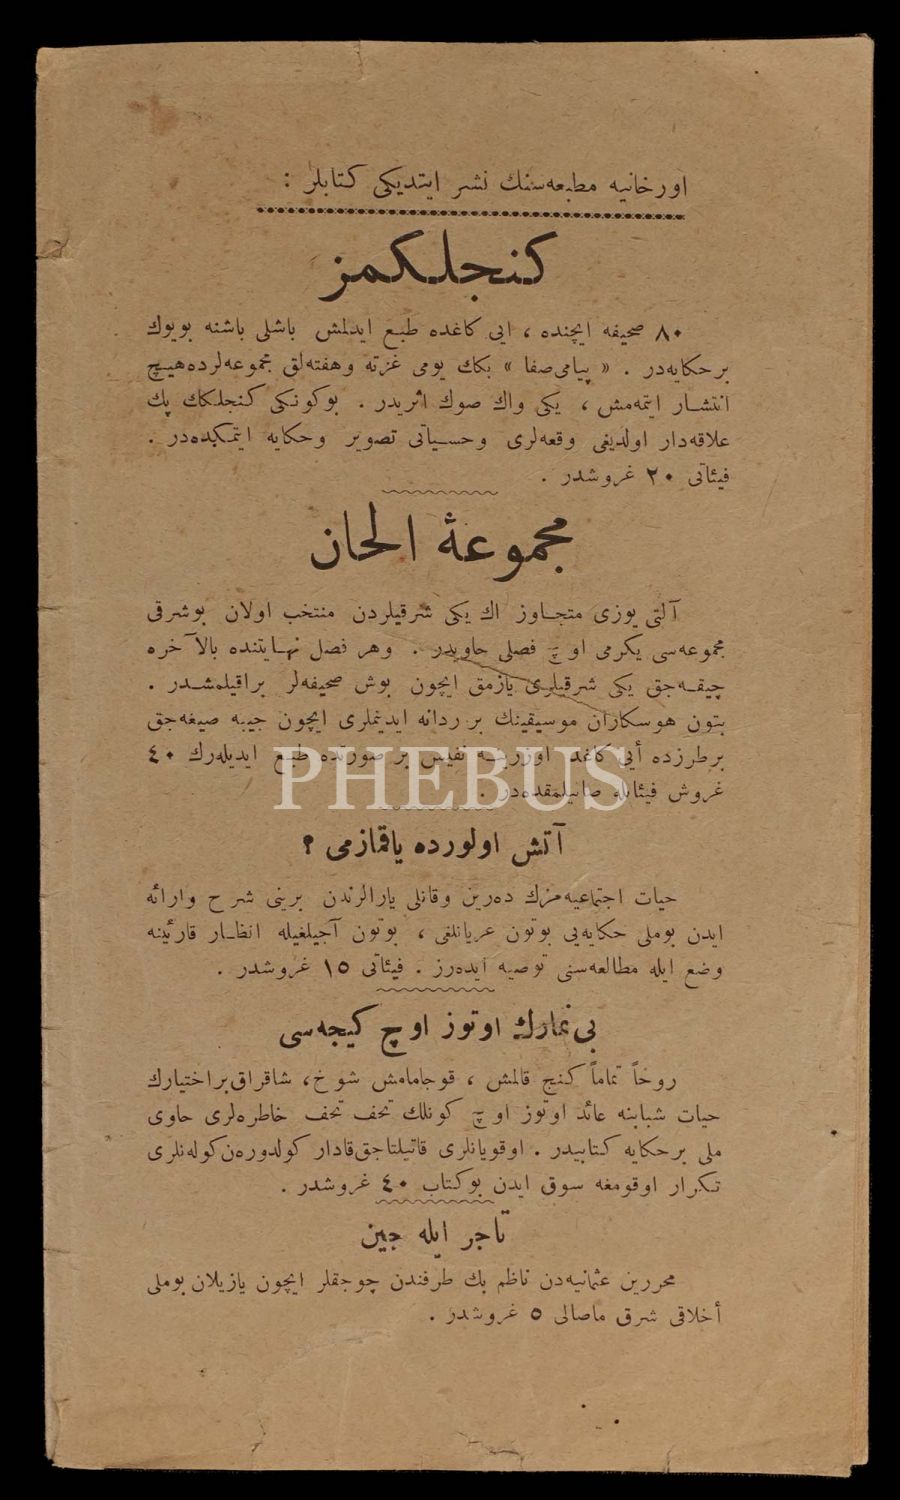 اورخانیه مطبعه‌سنك نشر ایتدیكی كتابلر :
كنجلكمز
٨٠ صحیفه ایچنده ، ایی كاغده طبع ایدلمش باشلی باشنه بویوك
برحكایه‌در . « پیامی صفا » بكك یومی غزته و هفته‌لق مجموعه‌لرده هیچ
انتشار ایتمه‌مش ، یكی و اك صوك اثریدر . بوكونكی كنجلكك پك
علاقه‌دار اولدیغی وقعه‌لری وحسیاتی تصویر وحكایه ایتمكده‌در .
فیئاتی ٢٠ غروشدر .
مجموعۀ الحان
آلتی یوزی متجاوز اك یكی شرقیلردن منتخب اولان بوشرقی
مجموعه‌سی یكرمی اوچ فصلی حاویدر . وهر فصل نهایتنده بالآخره
چیقه‌جق یكی شرقیلری یازمق ایچون بوش صحیفه‌لر براقیلمشدر .
بتون هوسكاران موسیقینك بر ردانه ایدنملری ایچون جیبه صیغه‌جق
برطرزده أیی كاغد اوزرینه نفیس بر صورتده طبع ایدیله‌رك ٤٠
غروش فیئاتله صاتیلمقده‌در .
آتش اولورده یاقمازمی ؟
حیات اجتماعیه‌مزك ده‌رین وقانلی یارالرندن برینی شرح وارائه
ایدن بوملی حكایه‌یی بوتون عریانلغی ، بوتون آجیلغیله انظار قارئینه
وضع ایله مطالعه‌سنی توصیه ایده‌رز . فیئاتی ١٥ غروشدر .
بی‌نمازك اوتوز اوچ كیجه‌سی
روحاً تماماً كنج قالمش ، قوجامامش شوخ، شاقراق براختیارك
حیات شبابنه عائد اوتوز اوچ كونلك تحف تحف خاطره‌لری حاوی
ملی برحكایه كتابیدر . اوقویانلری قاتیلتاجق‌قادار كولدوره‌ن‌كوله‌نلری
تكرار اوقومغه سوق ایدن بوكتاب ٤٠ غروشدر .
تاجر ایله جین
محررین عثمانیه‌دن ناظم بك طرفندن چوجقلر ایچون یازیلان بوملی
أخلاقی شرق ماصالی ٥ غروشدر .
PHEBUS